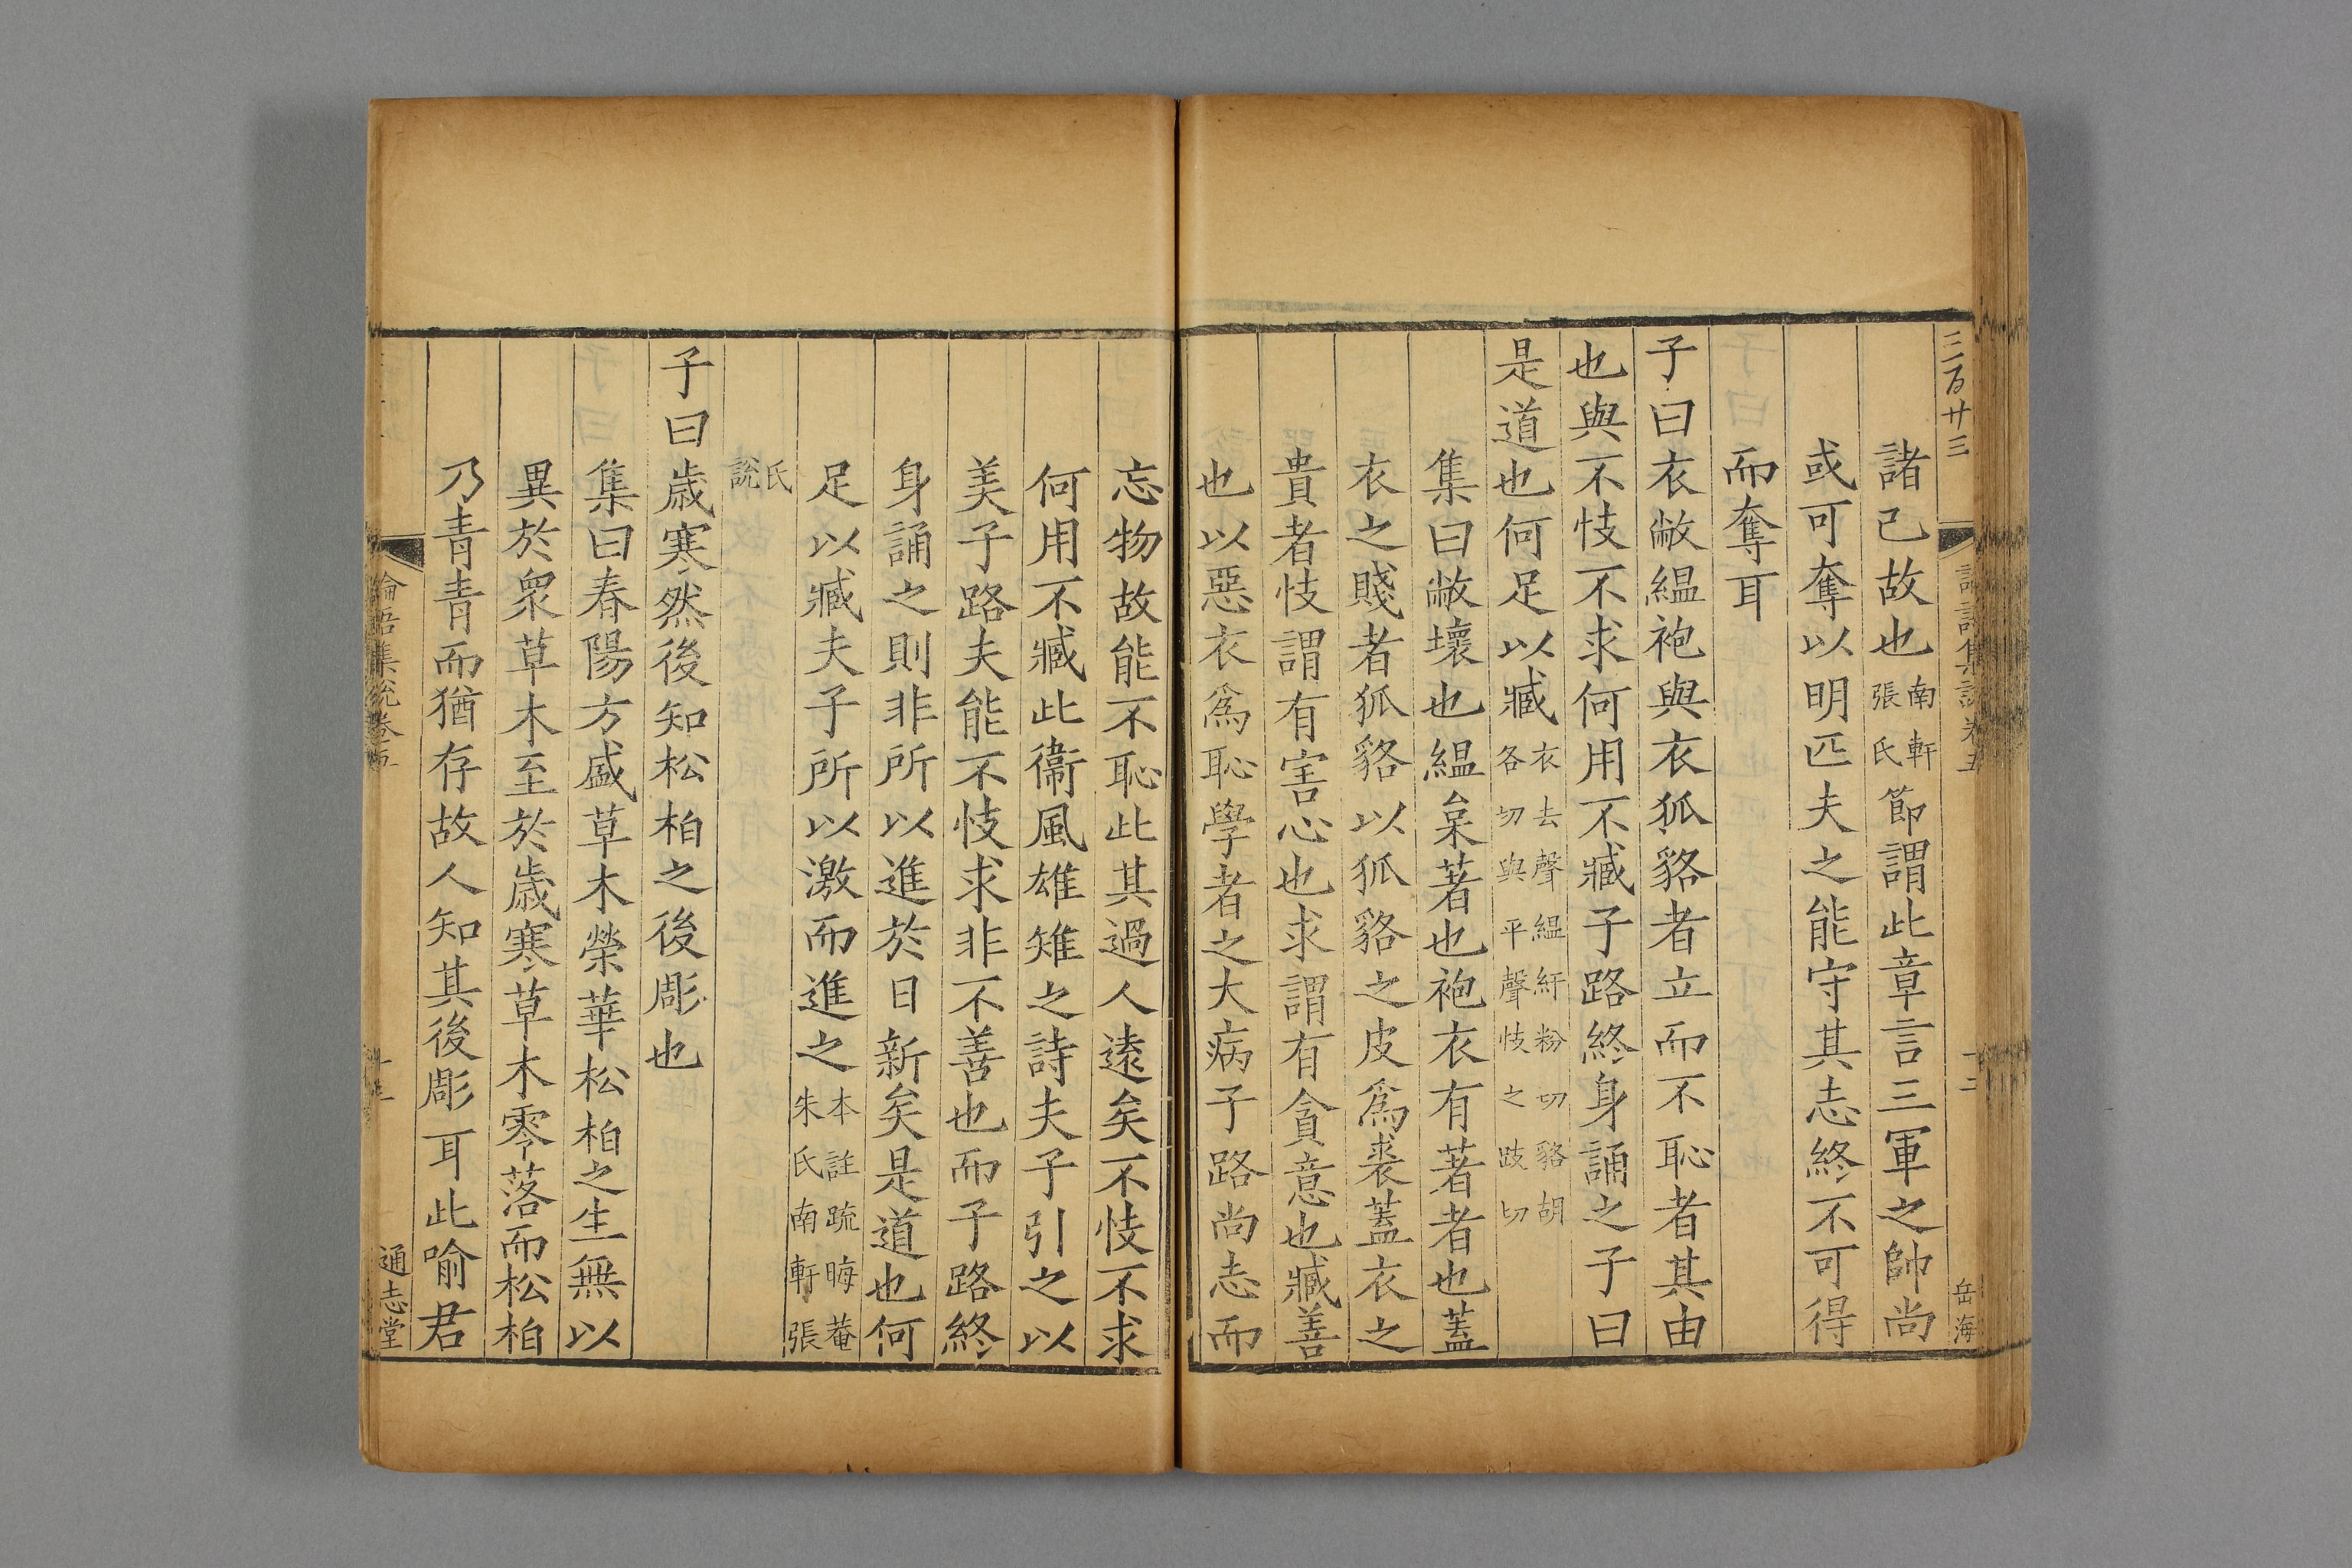 三百廿三
岳海
諸己故也南軒張氏節謂此章言三軍之帥尚
或可奪以明匹夫之能守其志終不可得
而奪耳
子曰衣敝縕袍與衣狐貉者立而不恥者其由
也與不忮不求何用不臧子路終身誦之子曰
是道也何足以臧衣去聲縕紆粉切貉胡各切與平聲忮之跂切
集曰敝壞也縕枲著也袍衣有著者也蓋
衣之賤者狐貉以狐貉之皮爲裘蓋衣之
貴者忮謂有害心也求謂有貪意也臧善
也以惡衣爲恥學者之大病子路尚志而
忘物故能不恥此其過人遠矣不忮不求
何用不臧此衞風雄雉之詩夫子引之以
美子路夫能不忮求非不善也而子路終
身誦之則非所以進於日新矣是道也何
足以臧夫子所以激而進之本註疏晦菴朱氏南軒張
氏說
子曰歲寒然後知松柏之後彫也
集曰春陽方盛草木榮華松柏之生無以
異於衆草木至於歲寒草木零落而松柏
乃青青而猶存故人知其後彫耳此喻君
通志堂